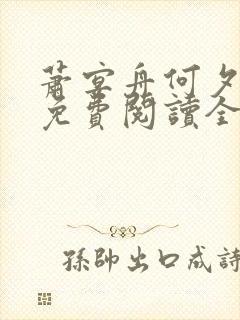 蕭宴舟何夕
免費閱讀全
孫帥出口成詩